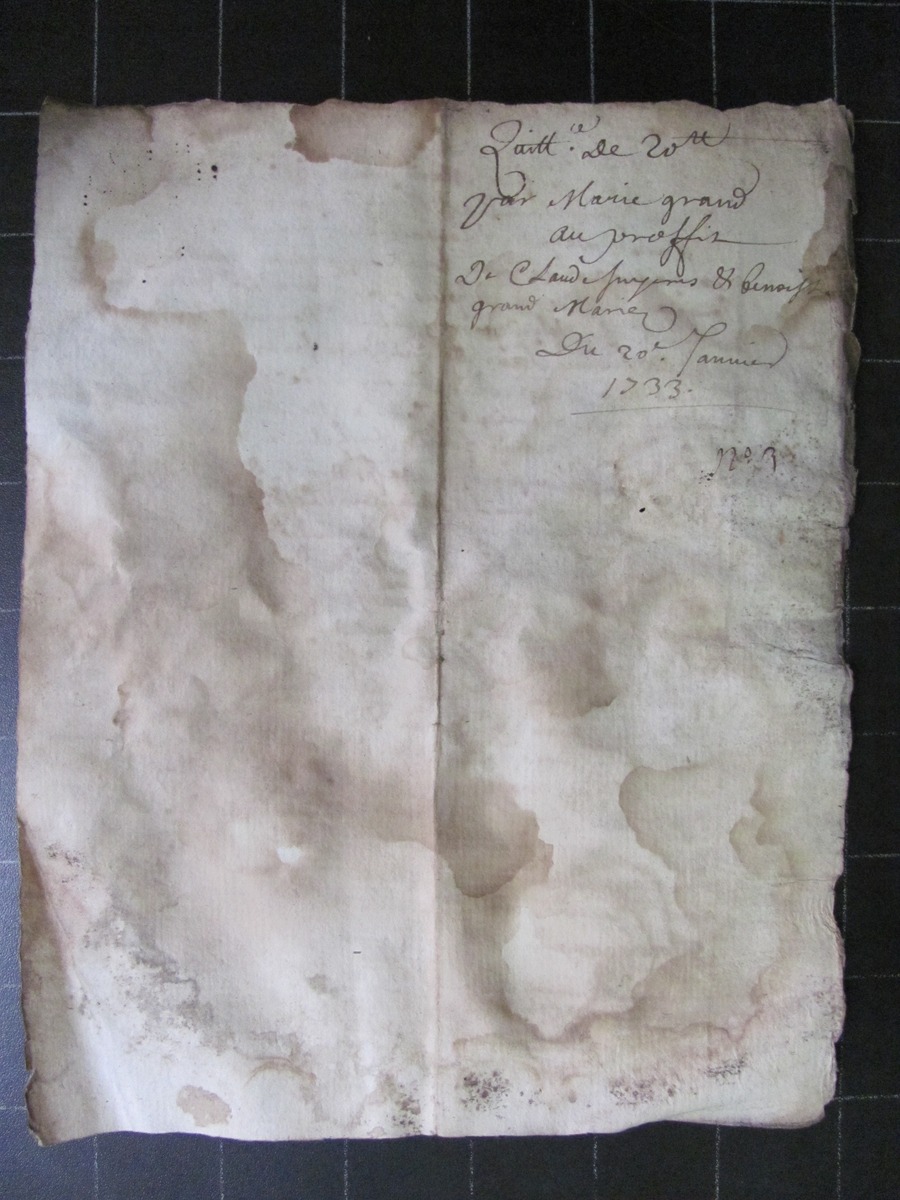 Quitt.ce de 20tt
par Marie grand
au proffit
De Claude & benoist
grand Marie
Du 20e. Janvier
1733.
No 3